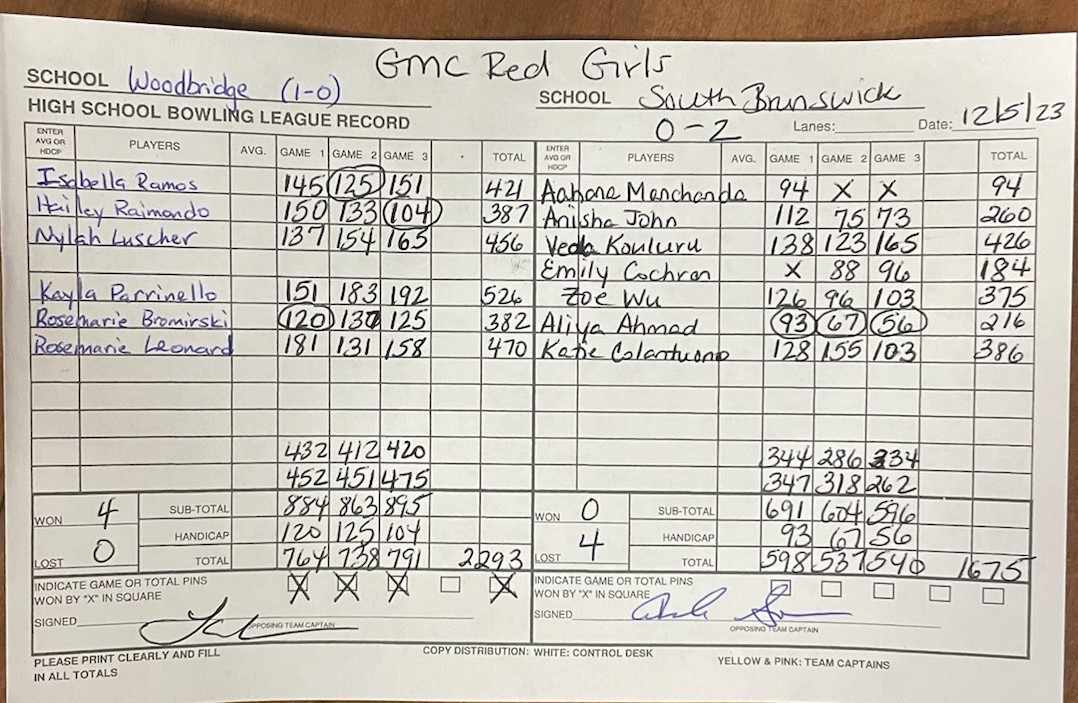 GMC Red Girls
SCHOOL Woodbridge (1-0) SCHOOL South Brunswick
HIGH SCHOOL BOWLING LEAGUE RECORD 0-2 Lanes: Date: 12/5/23
ENTER AVG OR HDCP PLAYERS AVG. GAME 1 GAME 2 GAME 3 TOTAL ENTER AVG OR HDCP PLAYERS AVG. GAME 1 GAME 2 GAME 3 TOTAL
Isabella Ramos 145 125 151 421 Aahana Manchanda 94 X X 94
Hailey Raimondo 150 133 104 387 Anisha John 112 75 73 260
Nylah Luscher 137 154 165 456 Veda Kouluru 138 123 165 426
Emily Cochran X 88 96 184
Kayla Parrinello 151 183 192 526 Zoe Wu 126 96 103 375
Rosemarie Bromirski 120 137 125 382 Aliya Ahmad 93 67 56 216
Rosemarie Leonard 181 131 158 470 Katie Colantuono 128 155 103 386
432 412 420 344 286 334
452 451 475 347 318 262
WON 4 SUB-TOTAL 884 863 895 WON 0 SUB-TOTAL 691 604 596
HANDICAP 120 125 104 HANDICAP 93 67 56
LOST 0 TOTAL 764 738 791 2293 LOST 4 TOTAL 598 537 540 1675
INDICATE GAME OR TOTAL PINS X X X X INDICATE GAME OR TOTAL PINS
WON BY "X" IN SQUARE WON BY "X" IN SQUARE
SIGNED SIGNED
OPPOSING TEAM CAPTAIN OPPOSING TEAM CAPTAIN
PLEASE PRINT CLEARLY AND FILL COPY DISTRIBUTION: WHITE: CONTROL DESK YELLOW & PINK: TEAM CAPTAINS
IN ALL TOTALS